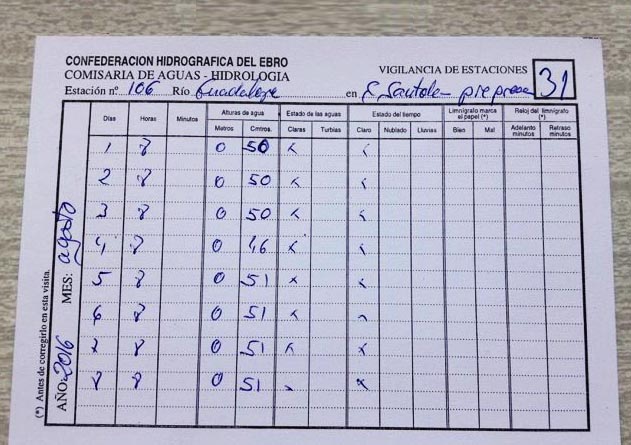 CONFEDERACION HIDROGRAFICA DEL EBRO
COMISARIA DE AGUAS - HIDROLOGIA
VIGILANCIA DE ESTACIONES
31
Estación nº 106 Río Guadalope en E. Santolea prepresa
Días Horas Minutos Alturas de agua Estado de las aguas Estado del tiempo Limnígrafo marca el papel (*) Reloj del limnígrafo (*)
Metros Cmtros. Claras Turbias Claro Nublado Lluvias Bien Mal Adelanto minutos Retraso minutos
1 8 0 50 x x
2 8 0 50 x x
3 8 0 50 x x
4 8 0 46 x x
5 8 0 51 x x
6 8 0 51 x x
7 8 0 51 x x
8 8 0 51 x x
MES: agosto
AÑO: 2016
(*) Antes de corregirlo en esta visita.